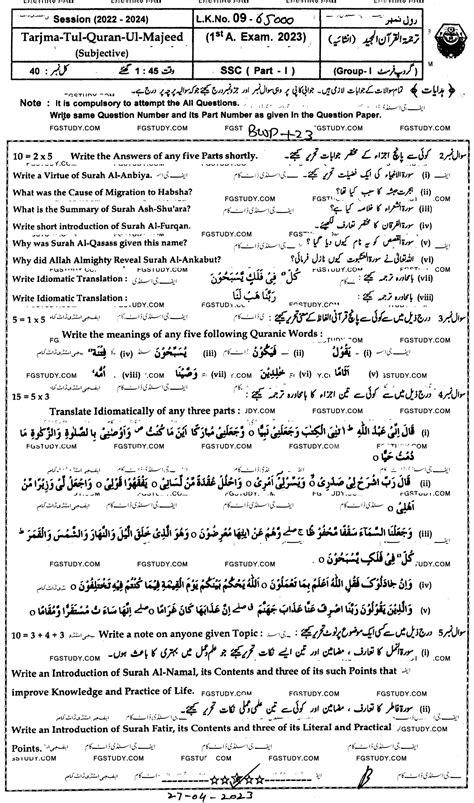 Session (2022 - 2024) L.K.No. 09 - 65000 رول نمبر
Tarjma-Tul-Quran-Ul-Majeed (1st A. Exam. 2023) ترجمۃ القرآن المجید (انشائیہ)
(Subjective)
کل نمبر: 40 وقت 1 : 45 گھنٹے SSC (Part - I) (Group-I) گروپ فرسٹ
Note : It is compulsory to attempt the All Questions.
Write same Question Number and its Part Number as given in the Question Paper.
FGSTUDY.COM FGSTUDY.COM BWP-1-23
10 = 2 x 5 Write the Answers of any five Parts shortly. سوال نمبر 2 کوئی سے پانچ اجزاء کے مختصر جوابات تحریر کیجئے۔
Write a Virtue of Surah Al-Anbiya. (i) سورۃ الانبیاء کی ایک فضیلت تحریر کیجئے۔
What was the Cause of Migration to Habsha? (ii) ہجرت حبشہ کا سبب کیا تھا؟
What is the Summary of Surah Ash-Shu'ara? (iii) سورۃ الشعراء کا خلاصہ کیا ہے؟
Write short introduction of Surah Al-Furqan. (iv) سورۃ الفرقان کا مختصر تعارف لکھئے۔
Why was Surah Al-Qasass given this name? (v) سورۃ القصص کو یہ نام کیوں دیا گیا؟
Why did Allah Almighty Reveal Surah Al-Ankabut? (vi) اللہ تعالیٰ نے سورۃ العنکبوت کیوں نازل فرمائی؟
Write Idiomatic Translation : كُلٌّ فِيْ فَلَكٍ يَّسْبَحُوْنَ (vii) بامحاورہ ترجمہ کیجئے:
Write Idiomatic Translation : رَبَّنَا هَبْ لَنَا (viii) بامحاورہ ترجمہ کیجئے:
5 = 1 x 5 سوال نمبر 3 درج ذیل میں سے کوئی سے پانچ قرآنی الفاظ کے معنی تحریر کیجئے:
Write the meanings of any five following Quranic Words :
(i) يَقُوْلُ (ii) فَيَكُوْنُ (iii) يَسْبَحُوْنَ (iv) فِتْنَةً
(v) اَثَامًا (vi) خٰلِدِيْنَ (vii) وَصَّيْنَا (viii) اُمُّهٗ
15 = 5 x 3 سوال نمبر 4 درج ذیل میں سے کوئی سے تین اجزاء کا بامحاورہ ترجمہ کیجئے:
Translate Idiomatically of any three parts :
(i) قَالَ اِنِّيْ عَبْدُ اللّٰهِ اٰتٰنِيَ الْكِتٰبَ وَجَعَلَنِيْ نَبِيًّا o وَجَعَلَنِيْ مُبٰرَكًا اَيْنَ مَا كُنْتُ وَاَوْصٰنِيْ بِالصَّلٰوةِ وَالزَّكٰوةِ مَا
دُمْتُ حَيًّا o
(ii) قَالَ رَبِّ اشْرَحْ لِيْ صَدْرِيْ o وَيَسِّرْلِيْ اَمْرِيْ o وَاحْلُلْ عُقْدَةً مِّنْ لِّسَانِيْ o يَفْقَهُوْا قَوْلِيْ o وَاجْعَلْ لِّيْ وَزِيْرًا مِّنْ
اَهْلِيْ o
(iii) وَجَعَلْنَا السَّمَآءَ سَقْفًا مَّحْفُوْظًا وَهُمْ عَنْ اٰيٰتِهَا مُعْرِضُوْنَ o وَهُوَ الَّذِيْ خَلَقَ الَّيْلَ وَالنَّهَارَ وَالشَّمْسَ وَالْقَمَرَ
كُلٌّ فِيْ فَلَكٍ يَّسْبَحُوْنَ o
(iv) وَاِنْ جَادَلُوْكَ فَقُلِ اللّٰهُ اَعْلَمُ بِمَا تَعْمَلُوْنَ o اَللّٰهُ يَحْكُمُ بَيْنَكُمْ يَوْمَ الْقِيٰمَةِ فِيْمَا كُنْتُمْ فِيْهِ تَخْتَلِفُوْنَ o
(v) وَالَّذِيْنَ يَقُوْلُوْنَ رَبَّنَا اصْرِفْ عَنَّا عَذَابَ جَهَنَّمَ اِنَّ عَذَابَهَا كَانَ غَرَامًا o اِنَّهَا سَآءَتْ مُسْتَقَرًّا وَّمُقَامًا o
10 = 3 + 4 + 3 Write a note on anyone given Topic : سوال نمبر 5 درج ذیل میں سے کسی ایک موضوع پر نوٹ تحریر کیجئے:
(i) سورۃ النمل کا تعارف ، مضامین اور تین ایسے نکات تحریر کیجئے جو علم و عمل میں بہتری کا باعث ہوں۔
Write an Introduction of Surah Al-Namal, its Contents and three of its such Points that
improve Knowledge and Practice of Life.
(ii) سورۃ فاطر کا تعارف ، مضامین اور کوئی سے تین علمی و عملی نکات تحریر کیجئے۔
Write an Introduction of Surah Fatir, its Contents and three of its Literal and Practical
Points.
27-04-2023